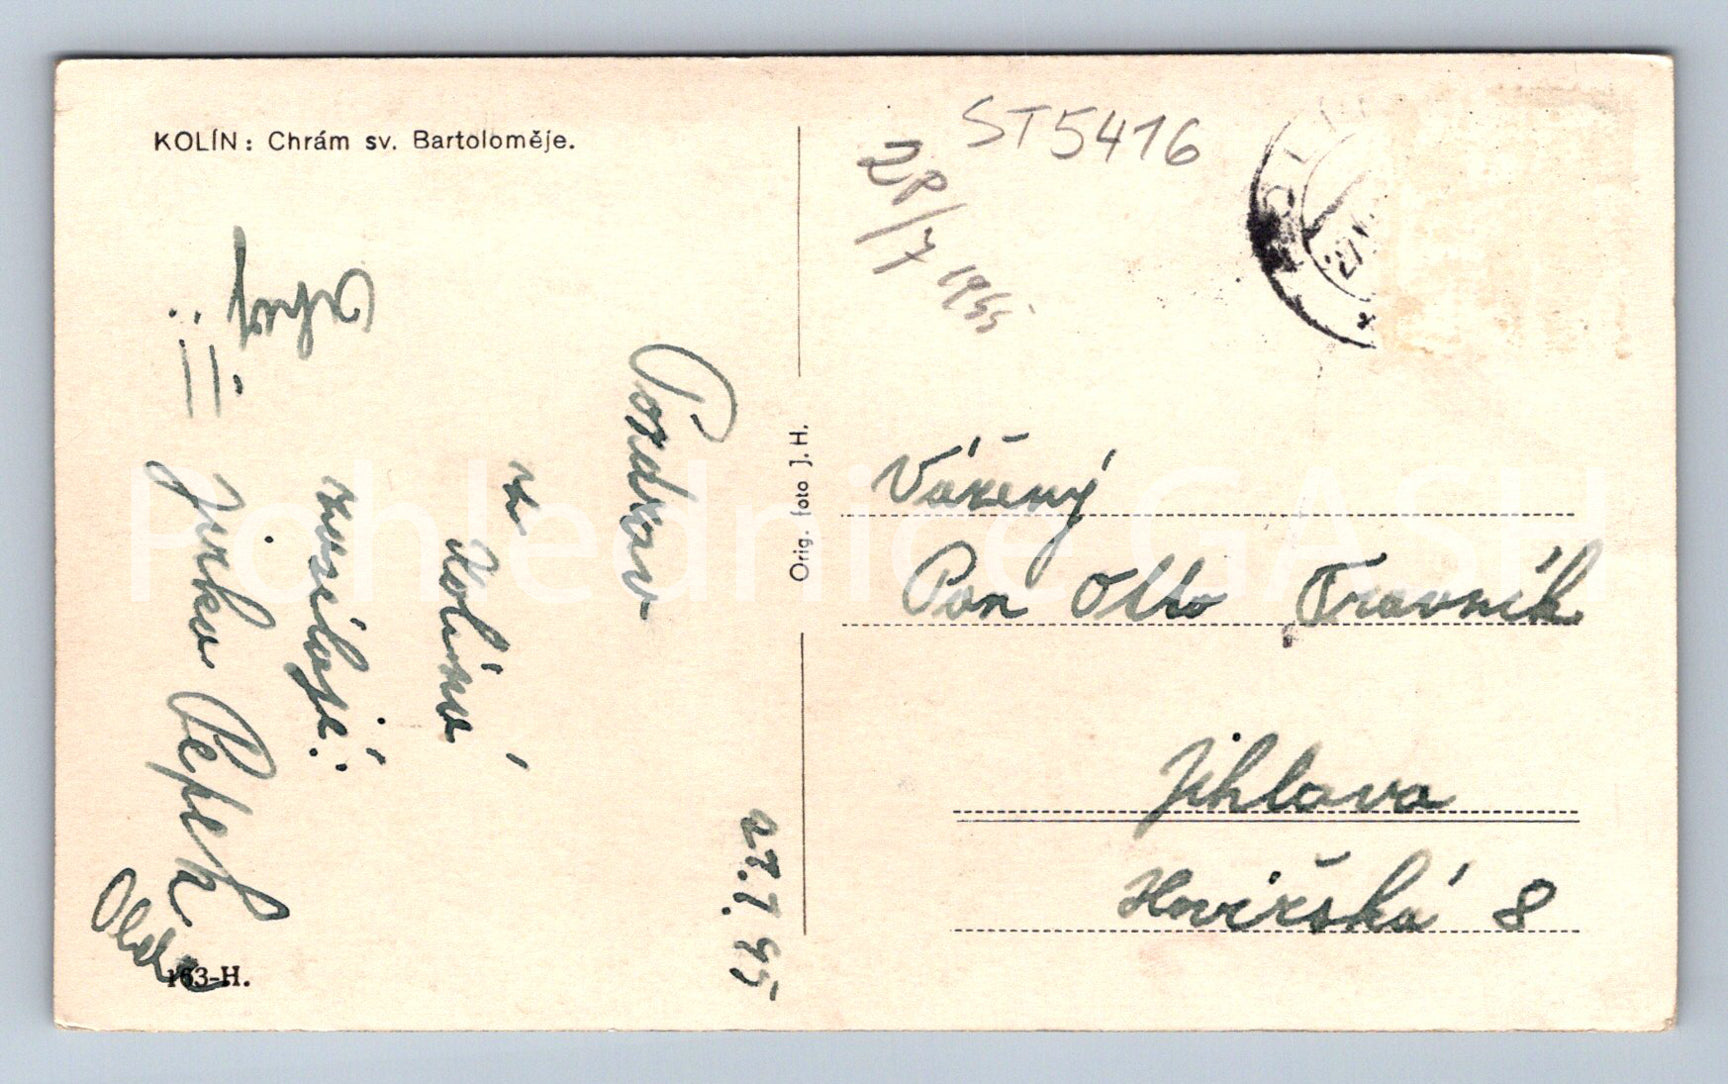 KOLÍN: Chrám sv. Bartoloměje.
ST5416
28/7 1955
27.V
Pozdrav
z
Kolína
zasílají:
Jirka Pepek
Olda
27.7.45
Orig. foto J. H.
Vážený
Pan Otto Trávník
Jihlava
Havířská 8
163-H.
Pohlednice GASH